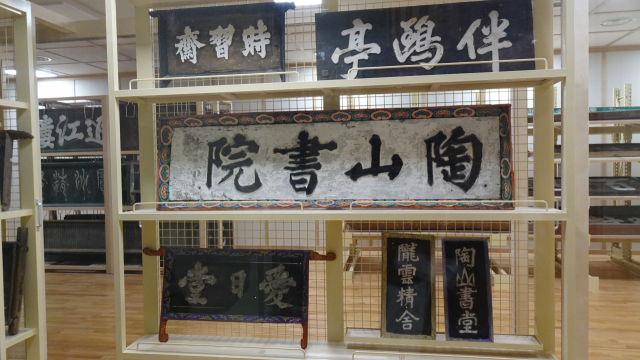 時習齋
伴鷗亭
陶山書院
愛日堂
隴雲精舍
陶山書堂